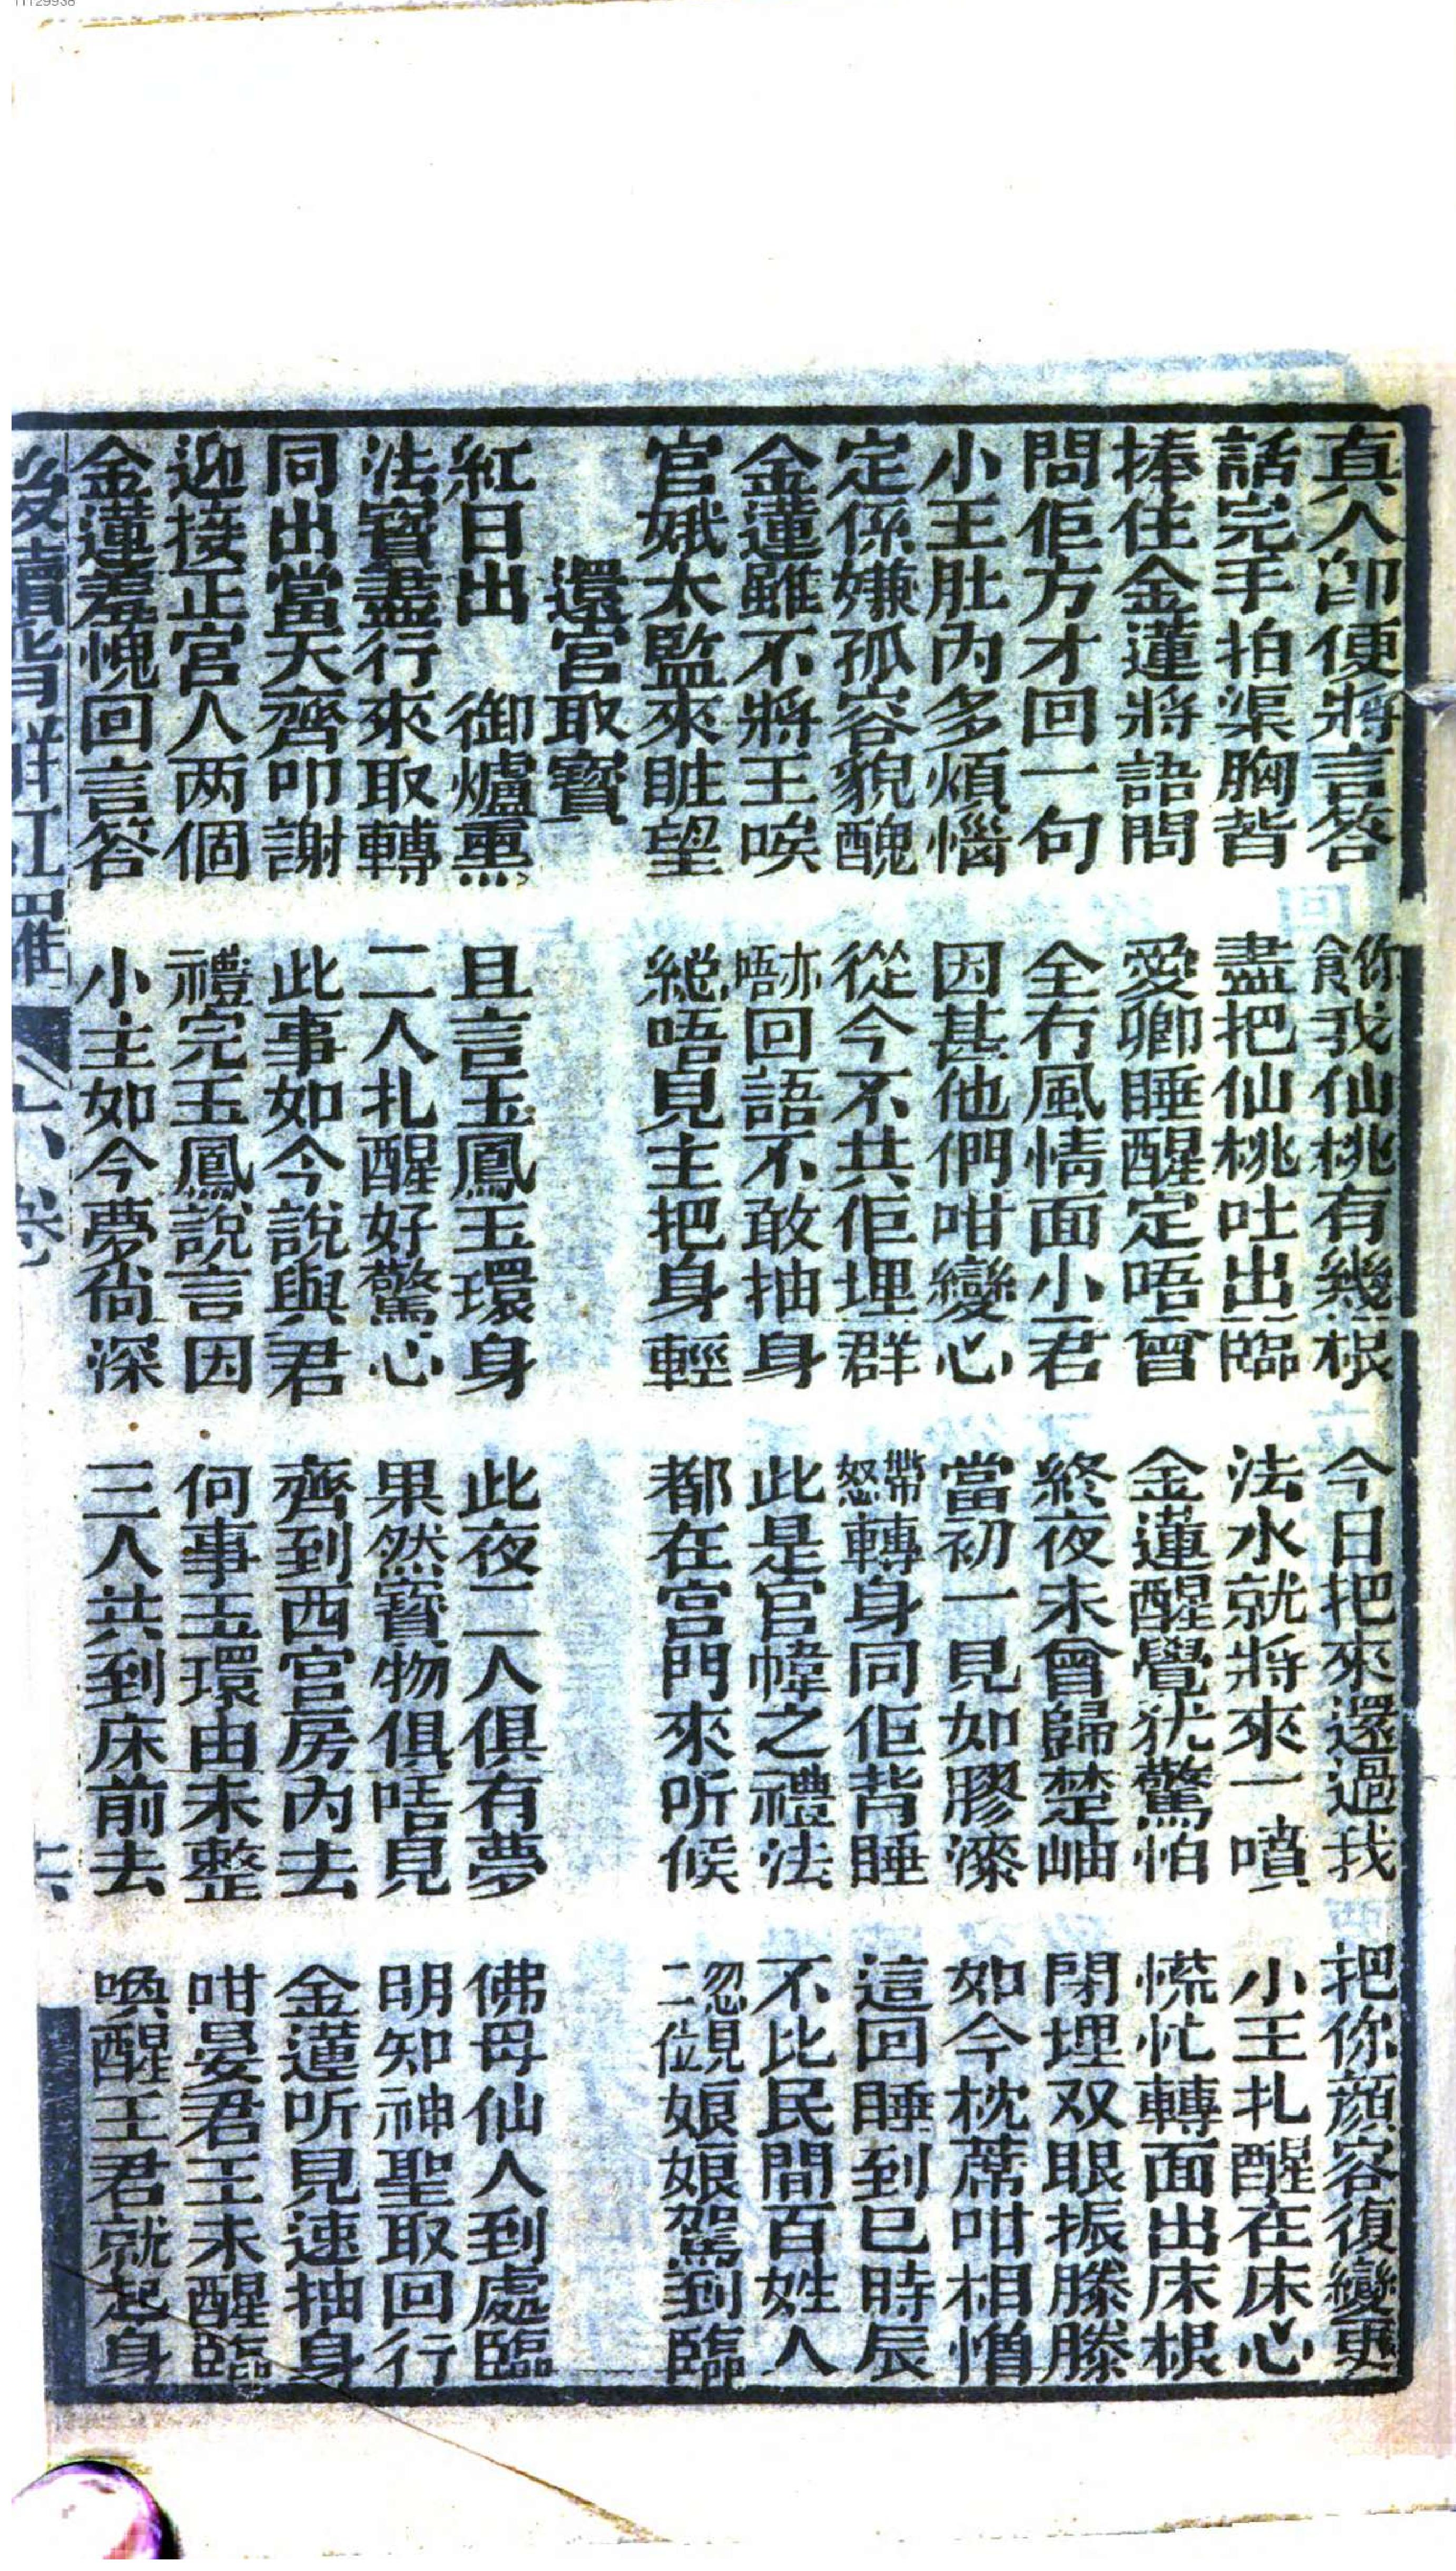 11129938
真人卽便將言答 你食我仙桃有幾根 今日把來還過我 把你顔容復變更
話完手拍渠胸背 盡把仙桃吐出臨 法水就將來一噴 小王扎醒在床心
捧住金蓮將語問 愛卿睡醒定唔曾 金蓮醒覺犹驚怕 慌忙轉面出床根
問佢方才回一句 全冇風情面小君 終夜未曾歸楚岫 閉埋双眼振滕滕
小王肚內多煩惱 因甚他們咁變心 當初一見如膠漆 如今枕蓆咁相憎
定係嫌孤容貌醜 從今不共佢埋群 帶怒轉身同佢背睡 這回睡到巳時辰
金蓮雖不將王唉 亦唔回語不敢抽身 此是官幃之禮法 不比民間百姓人
官娥太監來賍望 総唔見主把身輕 都在宮門來听候 忽見二位娘娘駕到臨
還宮取寶
紅日出 御爐熏 且言玉鳳玉環身 此夜二人俱有夢 佛母仙人到處臨
法寳盡行來取轉 二人扎醒好驚心 果然寳物俱唔見 明知神聖取回行
同出當天齊叩謝 此事如今說與君 齊到西官房內去 金蓮听見速抽身
迎接正宮人两個 禮完玉鳳說言因 何事玉環由未整 咁晏君王未醒臨
金蓮羞愧回言答 小主如今夢尚深 三人共到床前去 喚醒王君就起身